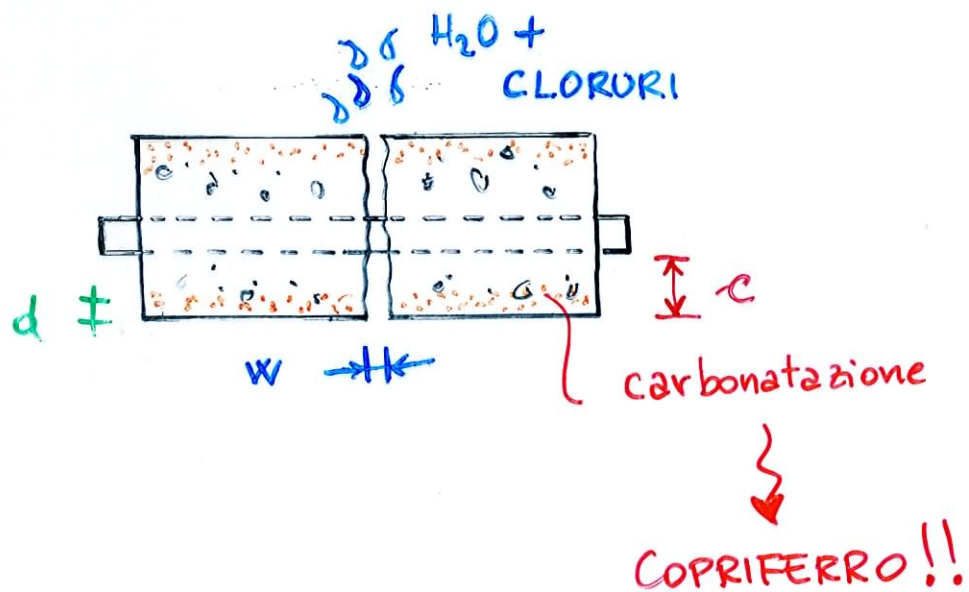 H₂O +
CLORURI
d
c
w
carbonatazione
COPRIFERRO!!